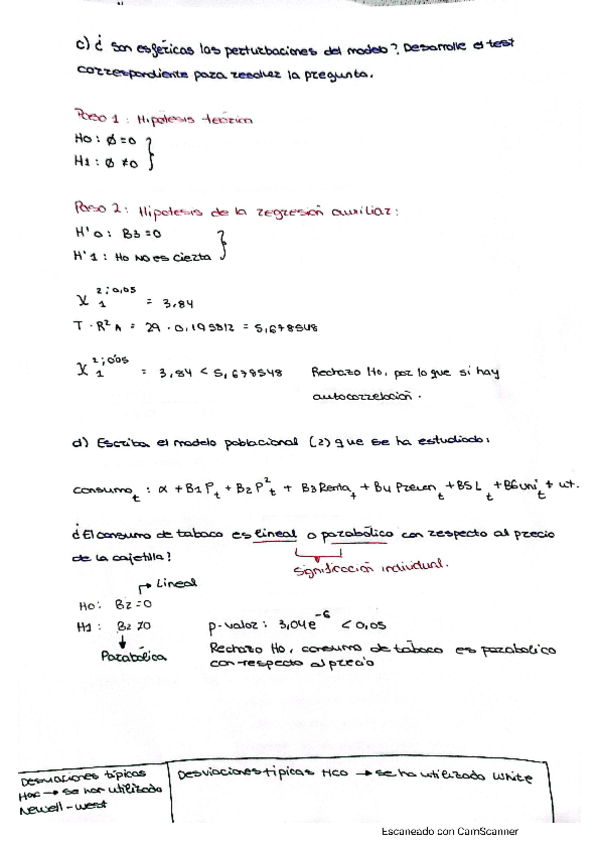 c) ¿ Son esféricas las perturbaciones del modelo?, Desarrolle el test
correspondiente para resolver la pregunta.
Paso 1 : Hipótesis teórica
H0 : ϕ = 0
H1 : ϕ ≠ 0
Paso 2 : Hipotesis de la regresión auxiliar :
H'0 : B3 = 0
H'1 : Ho NO es cierta
χ 1 2 ; 0,05 = 3,84
T · R² A = 29 · 0,195812 = 5,678548
χ 1 2 ; 0'05 = 3,84 < 5,678548 Rechazo Ho, por lo que si hay
autocorrelación .
d) Escriba el modelo poblacional (2) que se ha estudiado :
consumo t : α + B1 P t + B2 P² t + B3 Renta t + B4 Preven t + B5 L t + B6 uni t + ut.
¿ El consumo de tabaco es lineal o parabólico con respecto al precio
de la cajetilla?
significación individual.
Lineal
Ho : B2 = 0
H1 : B2 ≠ 0 p-valor : 3,04e⁻⁶ < 0,05
Parabólica Rechazo Ho, consumo de tabaco es parabolico
con respecto al precio
Desviaciones típicas
Hac → se han utilizado
Newell - west
Desviaciones típicas MCO → se ha utilizado White
Escaneado con CamScanner